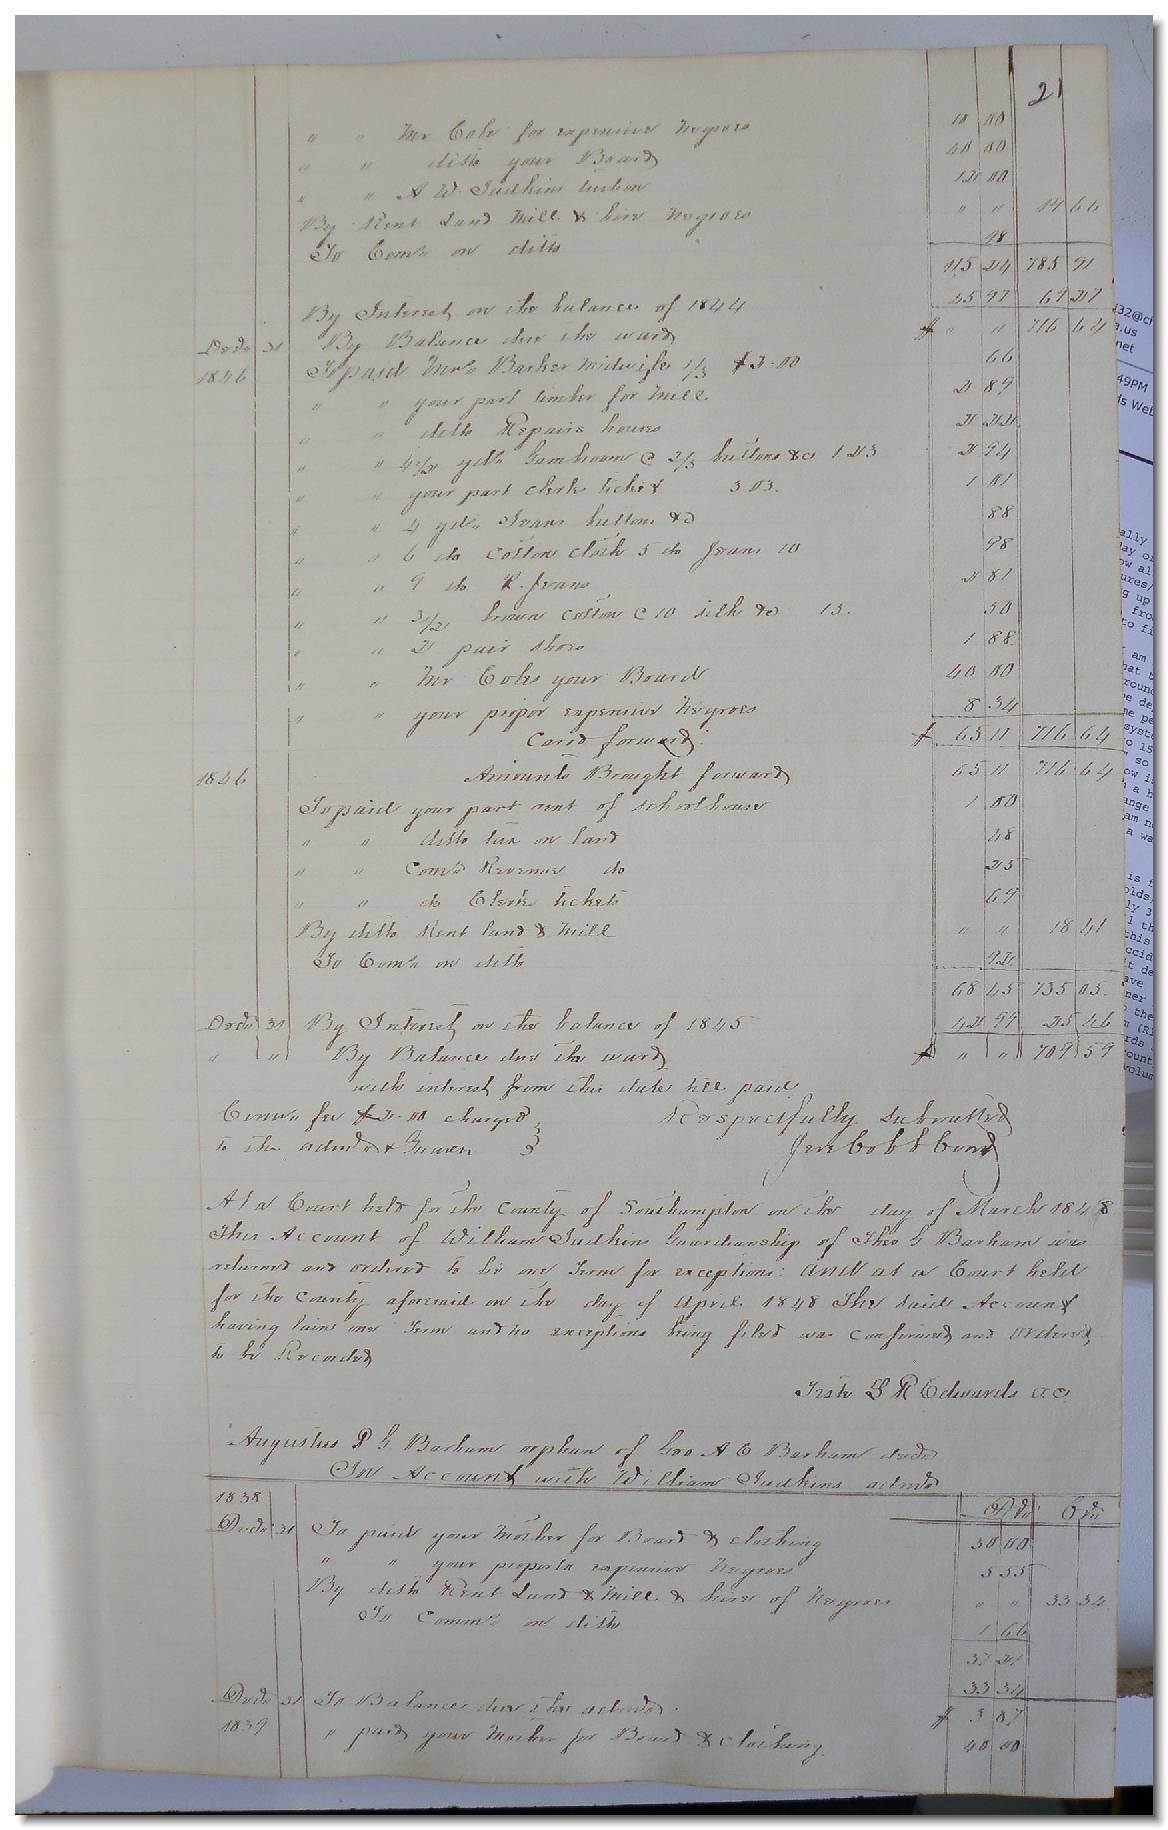 21
" " Mr Cole for expensive Negroes 10 00
" " ditto your Board 40 00
" " A W. Judkins tuition 12 00
By Rent Land Mill & hire Negroes " " 19 66
To Comn on ditto 98
115 24 785 91
By Interest on the balance of 1844 45 97 69 27
Decr 31 By Balance due the ward $ " " 716 64
1846 To paid Mrs Barker midwife 1/3 $3.00 66
" " your part timber for Mill 2 89
" " ditto Repairs houses 2 22
" " yds Gambroon @ 2/3 buttons &c 1 23 2 94
" " your part clerks ticket 3 03. 1 01
" " 4 yds Jeans buttons &c 88
" " 6 do Cotton cloth 5 do Jeans 10 98
" " 9 do K. Jeans 2 81
" " 3/2 brown cotton @ 10 silk &c 15. 50
" " 2 pair shoes 1 88
" " Mr Coles your Board 40 00
" " your propor expensive Negroes 8 34
Card forward $ 65 11 716 64
1846 Amounts Brought forward 65 11 716 64
To paid your part rent of schoolhouse 1 00
" " ditto tax on land 48
" " Comr Revenue do 25
" " do Clerks tickets 69
By ditto Rent land & Mill " " 18 41
To Comn on ditto 92
68 45 735 05.
Decr 31 By Interest on the balance of 1845 42 99 25 46
" " By Balance due the ward $ " " 709 59
with interest from this date till paid
Comrs fee $2.00 charged
to the admr &
Respectfully Submitted
Jere Cobb Comr
At a Court held for the County of Southampton on the day of March 1848
This Account of William Judkins Guardianship of Theo G Barham was
returned and ordered to lie one Term for exceptions: And at a Court held
for the County aforesaid on the day of April 1848 The said Account
having lain one Term and no exceptions being filed was confirmed and Ordered
to be Recorded
Teste L R Edwards CC
Augustus P G Barham orphan of Geo A C Barham decd
In Account with William Judkins admr
1838 Dr Cr
Decr 31 To paid your Mother for Board & clothing 30 00
" " your proportn expensive Negroes 5 55
By ditto Rent Land & Mill & hire of Negroes " " 33 34
To Commn on ditto 1 66
37 21
33 34
Decr 31 To Balance due the admr $ 3 87
1839 " paid your Mother for Board & clothing 40 00